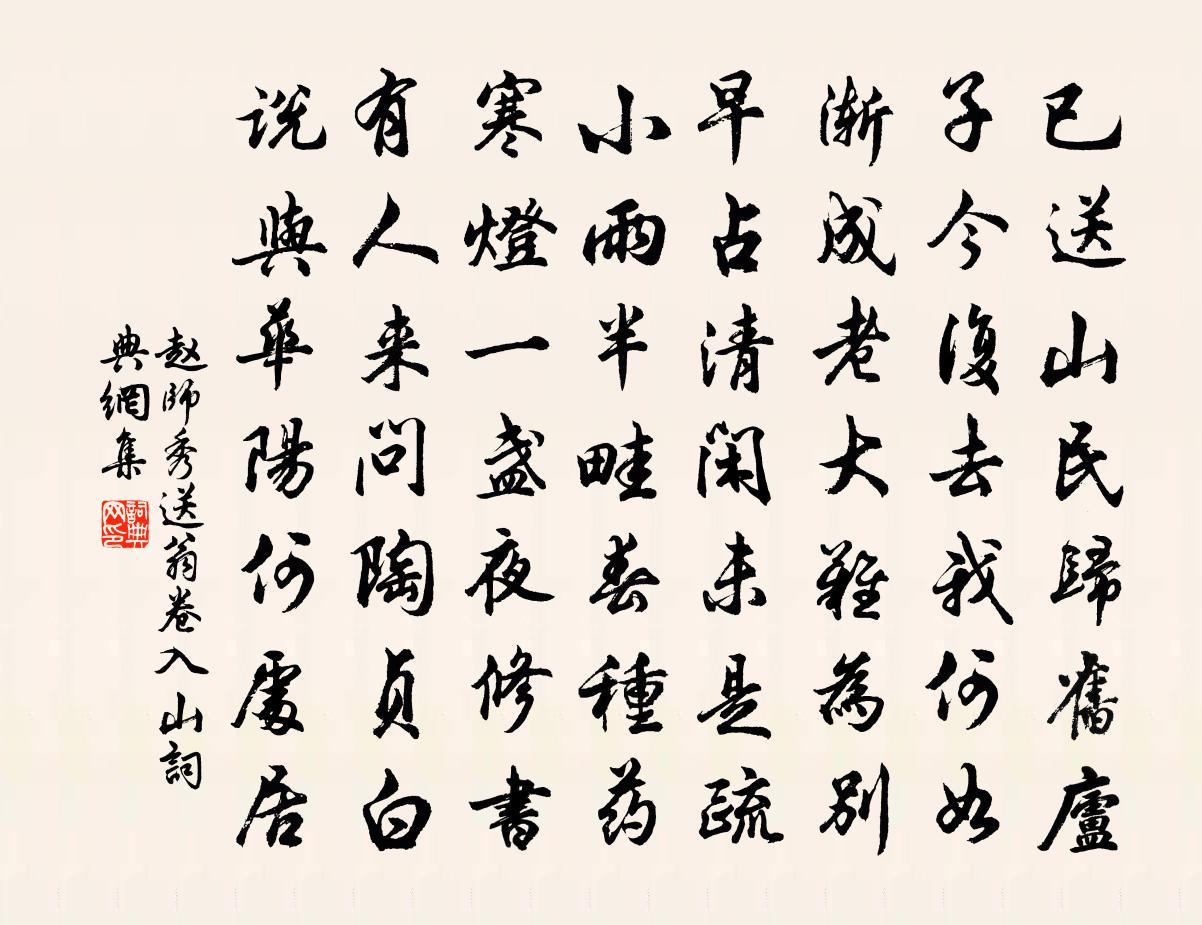 已送山民歸舊廬
子今復去我何如
漸成老大難為別
早占清閑未是疏
小雨半畦春種药
寒燈一盞夜修書
有人来問陶貞白
说與華陽何處居
赵師秀送翁卷入山詞
典網集
詞典
网印